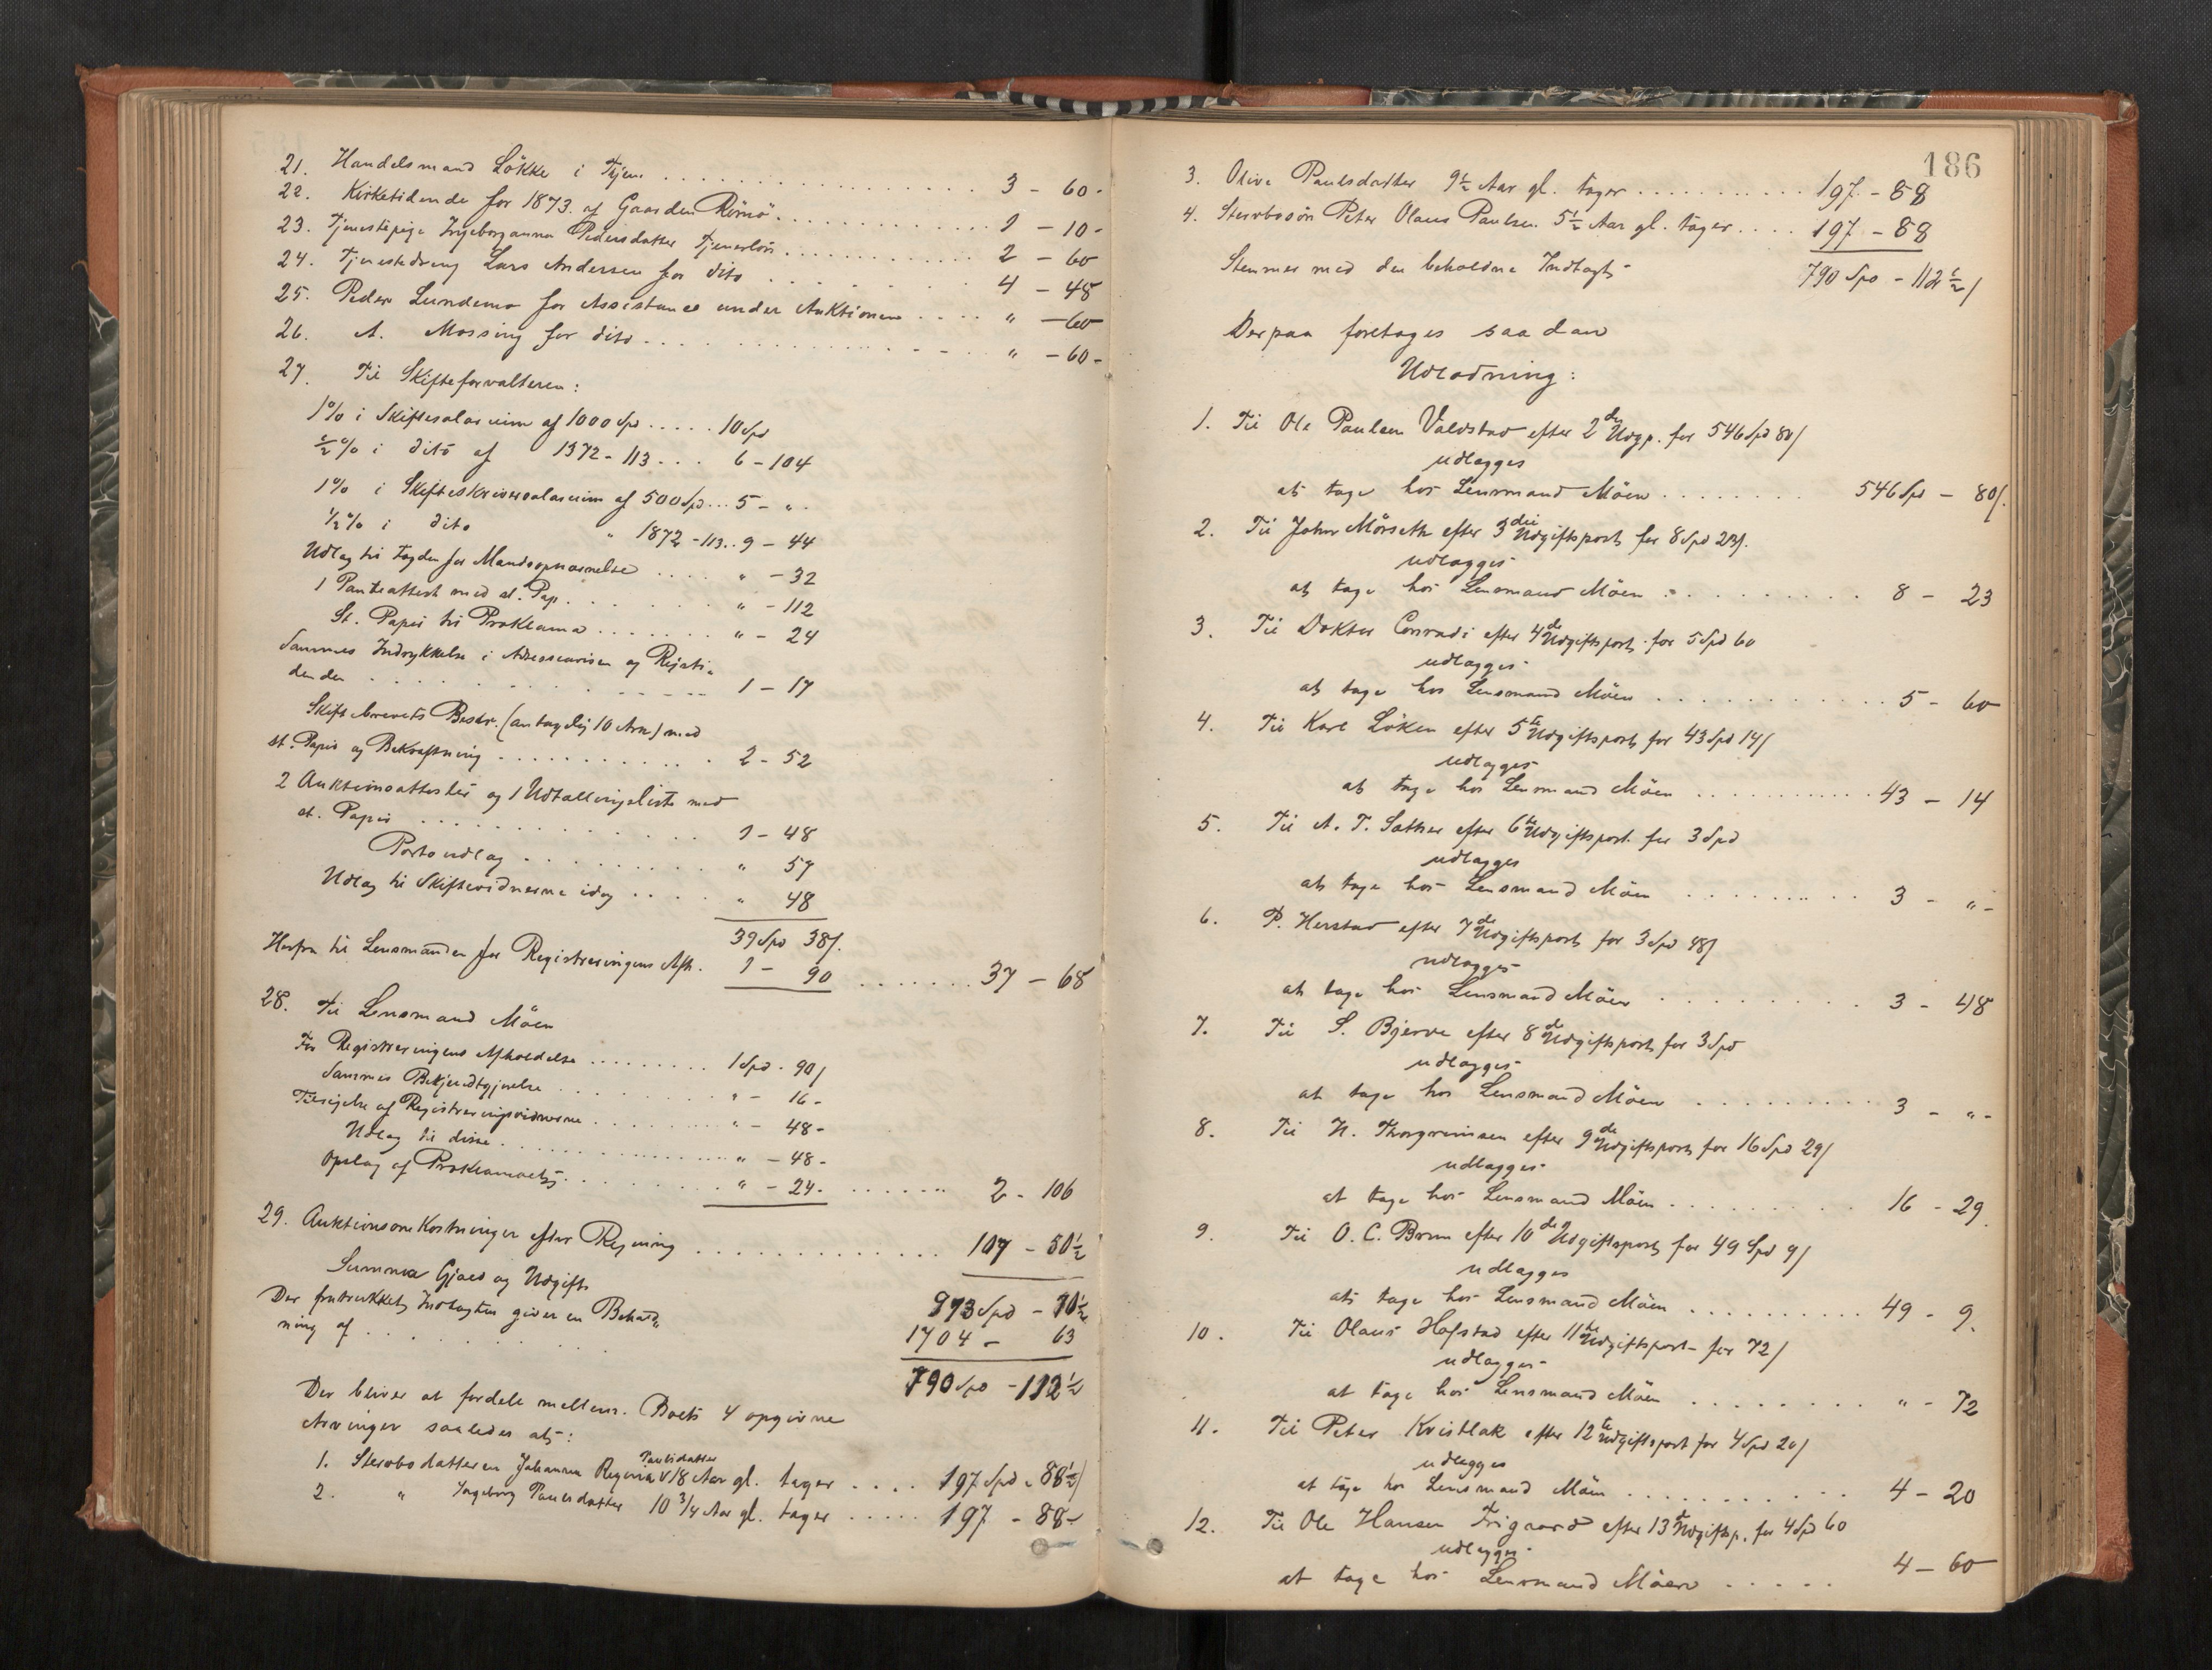 21. Handelsmand Lökke i Tijem . . . 3 - 60 -
22. Kirketidende for 1873 af Gaarden Römö . . . 1 - 10 -
23. Tjenestepige Ingeborganna Pedersdatter Tjenerlön . . . 2 - 60
24. Tjenestedreng Lars Andersen for dito . . . 4 - 48
25. Peder Lundemo for Assistance under Auktionen . . . " - 60
26. A. Mossing for dito . . . " - 60 -
27. Til Skifteforvalteren:
1% i Skiftesalarium af 1000 Spd . . . 10 Spd
1/2% i dito af 1372 - 113 . . . 6 - 104
1% i Skifteskriversalarium af 500 Spd . . . 5 - "
1/2% i dito " 1872 - 113 . . 9 - 44
Udlæg til Fogden for Mandsopnævnelse . . . " - 32
1 Panteattest med st. Pap. . . . " - 112
St. Papir til Proklama . . . " - 24
Sammes Indrykkelse i Adresseavisen og Rigsti-
denden . . . 1 - 17
Skiftebrevets Beskr. (antagelig 10 Ark) med
st. Papir og Bekræftning . . . 2 - 52
2 Auktionsattester og 1 Udtællingsliste med
st. Papir . . . 1 - 48
Portoudlæg . . . " 57
Udlæg til Skiftevidnerne idag . . . " 48
39 Spd 38/.
Herfra til Lensmanden for Registreringens Afh. 1 - 90 . . . 37 - 68
28. Til Lensmand Möen
For Registreringens Afholdelse . . . 1 Spd - 90/
Sammes Bekjendtgjørelse . . . " - 16 -
Tilsigelse af Registreringsvidnerne . . . " - 48 -
Udlæg til disse . . . " - 48 -
Opslag af Proklamaet . . . " - 24 - . . . 2 - 106
29. Auktionsomkostninger efter Regning . . . 107 - 50 1/2
Summa Gjæld og Udgift 913 Spd - 70 1/2
Der fratrukket Indtægten giver en Behold-
1704 - 63
ning af . . . 790 Spd - 112 1/2
Der bliver at fordele mellem Boets 4 opgivne
Arvinger saaledes at:
1. Stervbodatteren Johanna Regina Paulsdatter 18 Aar gl. tager . . . 197 Spd - 88 1/2/
2. " Ingeborg Paulsdatter 10 3/4 Aar gl. tager . . . 197 - 88 -
186
3. Olive Paulsdatter 9 1/2 Aar gl. tager . . . 197 - 88
4. Stervbosön Peter Olaus Paulsen 5 1/2 Aar gl. tager . . . 197 - 88
Stemmer med den beholdne Indtægt - 790 Spd - 112 1/2/
Derpaa foretages saadan
Udlodning:
1. Til Ole Paulsen Valdstad efter 2den Udgp. for 546 Spd 80/
udlægges
at tage hos Lensmand Möen . . . 546 Spd - 80/.
2. Til John Mörseth efter 3die Udgiftspost for 8 Spd 23/.
udlægges
at tage hos Lensmand Möen . . . 8 - 23
3. Til Doktor Conradi efter 4de Udgiftspost for 5 Spd 60
udlægges
at tage hos Lensmand Möen . . . 5 - 60
4. Til Karl Löken efter 5te Udgiftspost for 43 Spd 14/
udlægges
at tage hos Lensmand Möen . . . 43 - 14
5. Til A. T. Sæther efter 6te Udgiftspost for 3 Spd
udlægges
at tage hos Lensmand Möen . . . 3 - " -
6. P. Herstad efter 7de Udgiftspost for 3 Spd 48/
udlægges
at tage hos Lensmand Möen . . . 3 - 48
7. Til S. Bjerve efter 8de Udgiftspost for 3 Spd
udlægges
at tage hos Lensmand Möen . . . 3 - " -
8. Til N. Thorgrimsen efter 9de Udgiftspost for 16 Spd 29/
udlægges
at tage hos Lensmand Möen . . . 16 - 29.
9. Til O. C. Brun efter 10de Udgiftspost for 49 Spd 9/
udlægges
at tage hos Lensmand Möen . . . 49 - 9.
10. Til Olaus Hofstad efter 11te Udgiftspost for 72/
udlægges
at tage hos Lensmand Möen . . . " - 72
11. Til Peter Kvistlak efter 12te Udgiftspost for 4 Spd 20/
udlægges
at tage hos Lensmand Möen . . . 4 - 20
12. Til Ole Hansen Trigaard efter 13te Udgiftsp. for 4 Spd 60
udlægges
at tage hos Lensmand Möen . . . 4 - 60